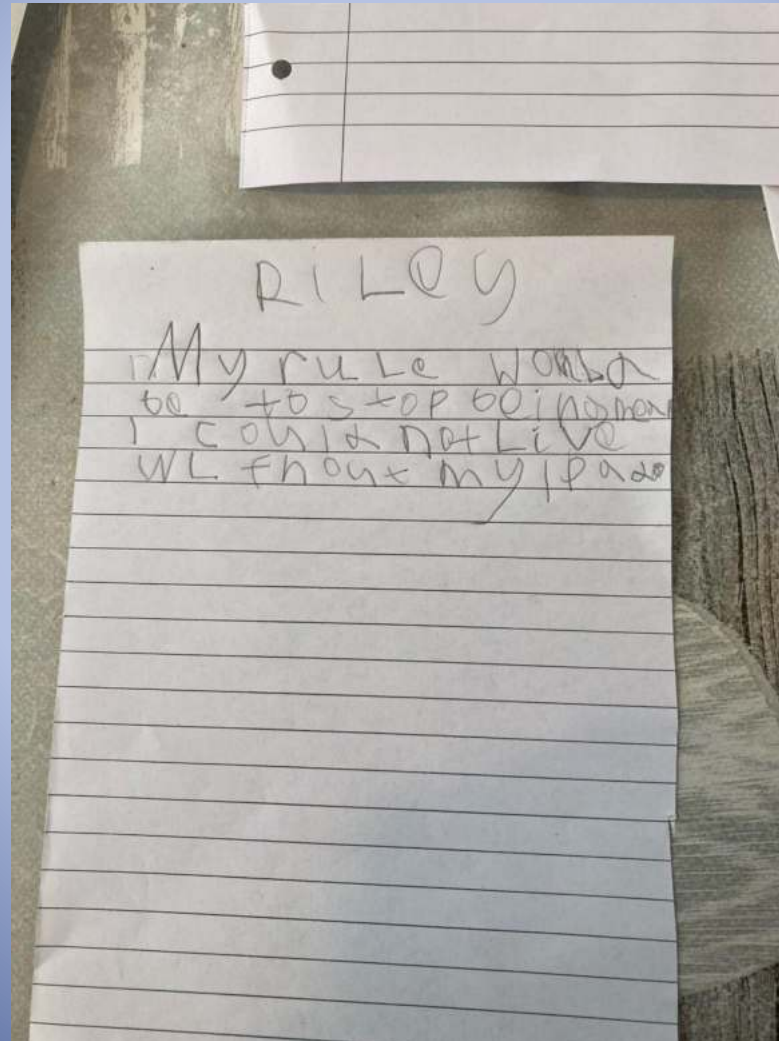 RILEY
My rule would
be to stop being mean
I could not Live
without my ipad